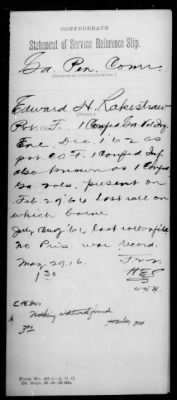 CONFEDERATE
Statement of Service Reference Slip.
Ga. Pen. Comr.
Edward H. Rakestraw
(Name.)
Pvt. Co. F. 1 Confed Ga Vol Inf
Enl. Dec. 1 62 as
pvt. Co F. 1 Confed Inf
also known as 1 Confed
Ga Vols. present on
Feb 29/64 last roll on
which borne
July Aug/62 last roll on file
no Pris. war record.
May 29, 16.
1 20
C.R.W.
Nothing additional found